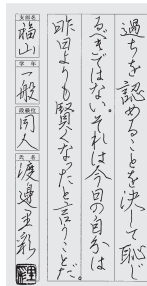 過ちを認めることを決して恥じ
るべきではない。それは今回の自分は
昨日よりも賢くなったと言うことだ。
支部名
福山
学年
一般
段級位
同人
氏名
渡邊